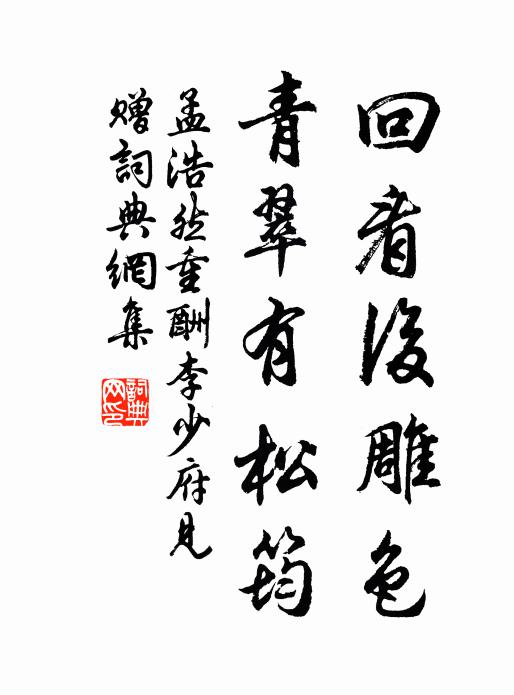 回看後雕色
青翠有松筠
孟浩然重酬李少府見
贈詞典網集
詞典網印